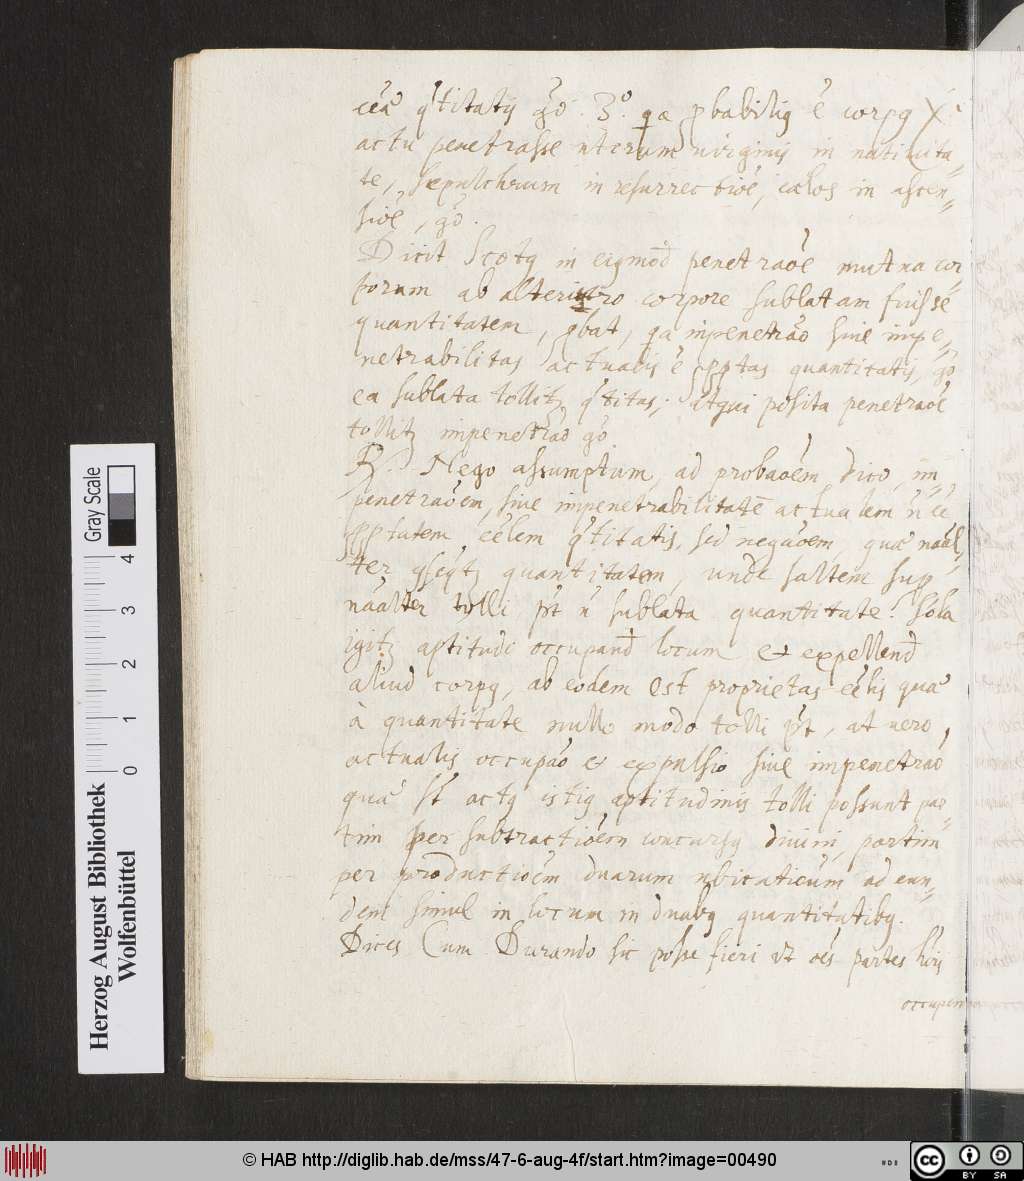 cēa q̃titatis g̃o. 3º. qa ꝓbabiliꝯ ē corpꝯ X.i
actu penetrasse uterum virginis in nativita-
te, sepulchrum in resurrectiōe, cælos in ascen-
siōe, g̃o.
Dicit Scotꝯ in eiꝯmod penetraōe mutua cor
porum ab alterutro corpore sublatam fuisse
quantitatem, ꝓbat, qa inpenetraō sive impe-
netrabilitas actualis ē ꝓptas quantitatis, g̃o
ea sublata tollit q̃titas; atqui posita penetraōe
tollit impenetraō g̃o.
R. Nego assumptum, ad probaōem dico, im-
penetraōem, sive impenetrabilitatē actualem ñ ēē
ꝓptatem ēēlem q̃titatis, sed neg̃aōem, quæ naāl-
ter ꝯseqt quantitatem, unde saltem sup
naālter tolli pt ñ sublata quantitate. Sola
igit aptitudo occupand locum et expellend
aliud corpꝯ, ab eodem est proprietas ēēlis quæ
à quantitate nullo modo tolli pt, at vero
actualis occupaō et expulsio sive impenetraō
quæ st actꝯ istiꝯ aptitudinis tolli possunt par-
tim per subtractiōem concursꝯ divini, partim
per productiōem duarum ubicatiōum ad eun-
dem simul in locum in duabꝯ quantitatibꝯ.
Dices Cum Durando sic posse fieri ut oēs partes
occupen
Herzog August Bibliothek
Wolfenbüttel
Gray Scale
0 1 2 3 4
© HAB http://diglib.hab.de/mss/47-6-aug-4f/start.htm?image=00490
cc BY SA